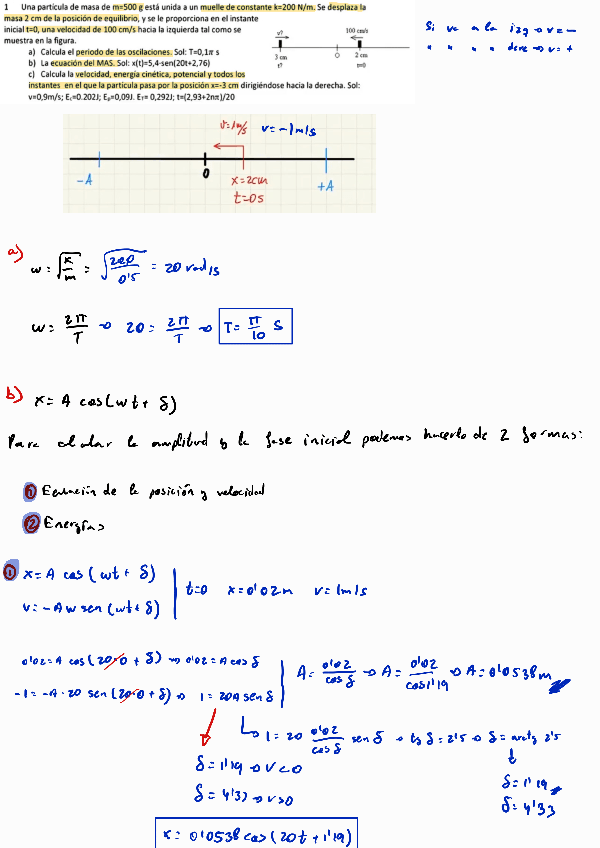 1 Una partícula de masa de m=500 g está unida a un muelle de constante k=200 N/m. Se desplaza la
masa 2 cm de la posición de equilibrio, y se le proporciona en el instante
inicial t=0, una velocidad de 100 cm/s hacia la izquierda tal como se
muestra en la figura.
a) Calcula el periodo de las oscilaciones. Sol: T=0,1π s
b) La ecuación del MAS. Sol: x(t)=5,4·sen(20t+2,76)
c) Calcula la velocidad, energía cinética, potencial y todos los
instantes en el que la partícula pasa por la posición x=-3 cm dirigiéndose hacia la derecha. Sol:
v=0,9m/s; Ec=0.202J; Ep=0,09J. ET= 0,292J; t=(2,93+2nπ)/20
v?
100 cm/s
3 cm
O
2 cm
t?
t=0
Si va a la izq → v = -
" " " " dere → v = +
v=1m/s
v = -1m/s
-A
0
x=2cm
+A
t=0s
a)
w = √(K/m) = √(200/0'5) = 20 rad/s
w = 2π/T → 20 = 2π/T → T = π/10 s
b) x = A cos(wt + δ)
Para calcular la amplitud y la fase inicial podemos hacerlo de 2 formas:
① Ecuación de la posición y velocidad
② Energías
① x = A cos (wt + δ)
v = -A w sen (wt + δ)
t=0 x=0'02m v=1m/s
0'02 = A cos (20·0 + δ) → 0'02 = A cos δ
-1 = -A·20 sen (20·0 + δ) → 1 = 20A sen δ
A = 0'02/cos δ → A = 0'02/cos 1'19 → A = 0'0538 m
1 = 20 0'02/cos δ sen δ → tg δ = 2'5 → δ = arctg 2'5
δ = 1'19 → v<0
δ = 4'33 → v>0
δ = 1'19
δ = 4'33
x = 0'0538 cos (20t + 1'19)